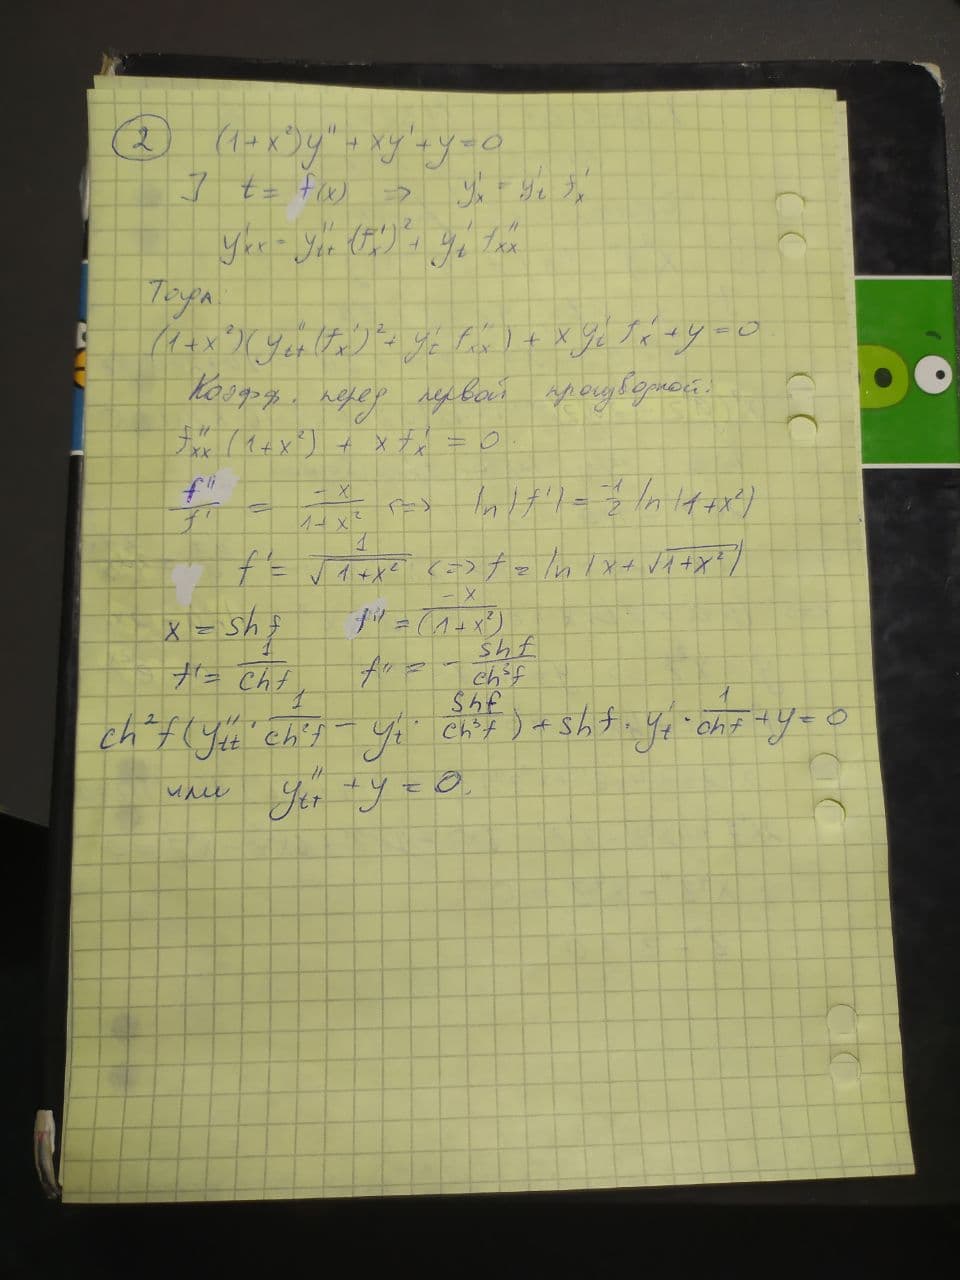 2 (1+x²)y'' + xy' + y = 0
] t = f(x) => y'ₓ = y'ₜ f'ₓ
y'ₓₓ = y''ₜₜ (f'ₓ)² + y'ₜ f''ₓₓ
Тогда:
(1+x²)(y''ₜₜ (f'ₓ)² + y'ₜ f''ₓₓ) + x y'ₜ f'ₓ + y = 0
Коэфф. перед первой производной:
f''ₓₓ (1+x²) + x f'ₓ = 0.
f''/f' = -x/(1+x²) <=> ln|f'| = -1/2 ln|1+x²)
f' = 1/√(1+x²) <=> f = ln|x+√(1+x²)|
x = sh f f'' = -x/(1+x²)
f' = 1/ch f f'' = - sh f/ch³f
ch²f (y''ₜₜ · 1/ch²f - y'ₜ · sh f/ch³f) + sh f · y'ₜ · 1/ch f + y = 0
или y''ₜₜ + y = 0.